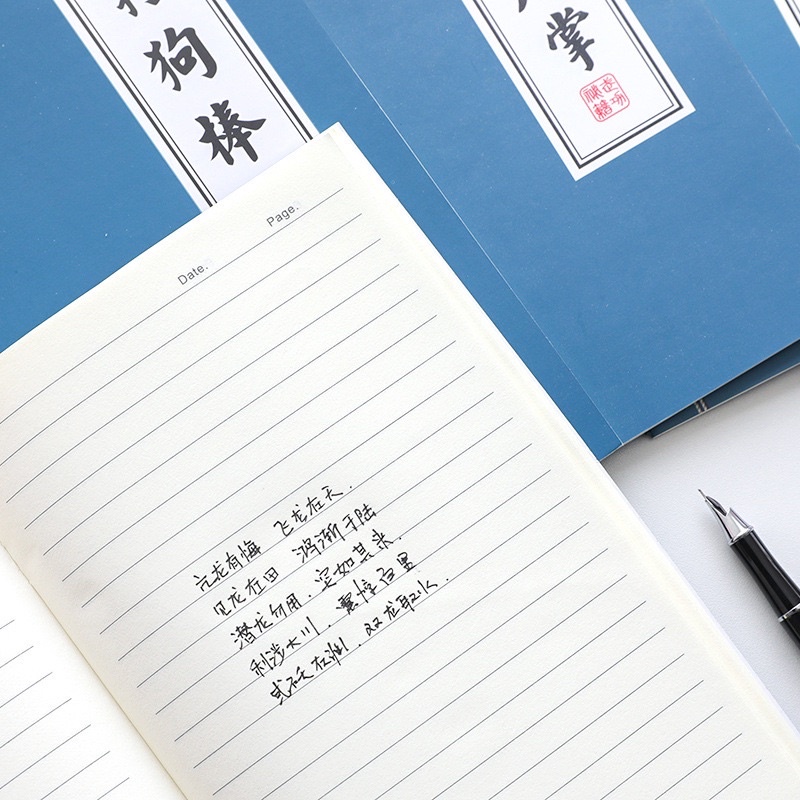 狗棒
掌
武功
秘籍
Date.
Page.
亢龙有悔 飞龙在天.
见龙在田 鸿渐于陆
潜龙勿用. 突如其来.
利涉大川. 震惊百里
或跃在渊. 双龙取水.